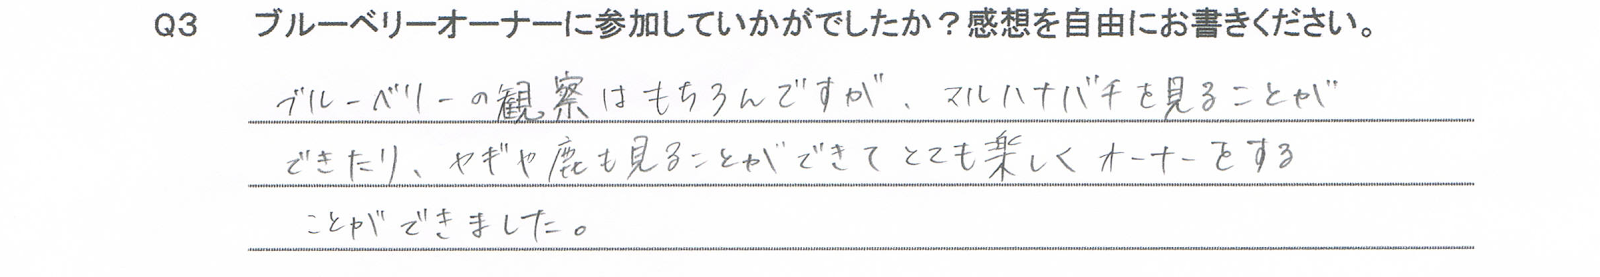 Q3 ブルーベリーオーナーに参加していかがでしたか？感想を自由にお書きください。
ブルーベリーの観察はもちろんですが、マルハナバチを見ることが
できたり、ヤギや鹿も見ることができてとても楽しくオーナーをする
ことができました。